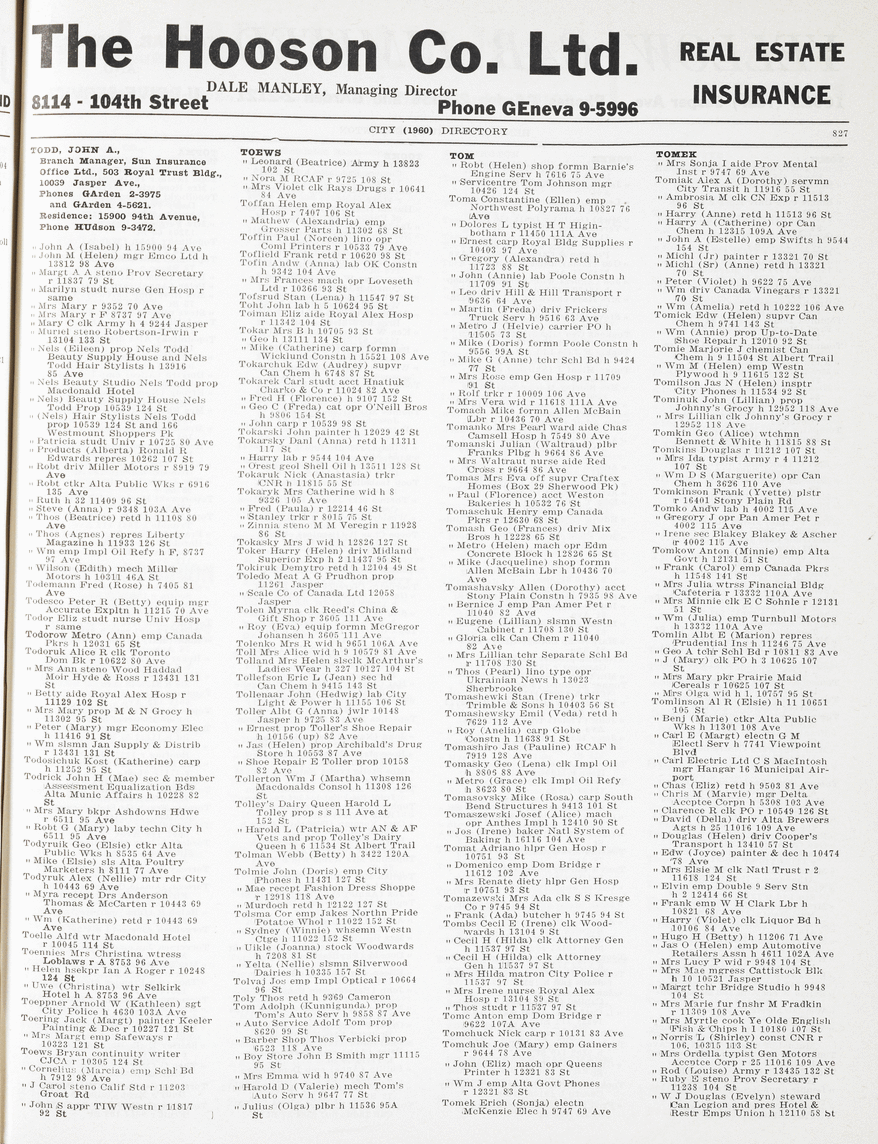 The Hooson Co. Ltd.
DALE MANLEY, Managing Director
8114 - 104th Street
Phone GEneva 9-5996
REAL ESTATE
INSURANCE
CITY (1960) DIRECTORY
827
TODD, JOHN A.,
Branch Manager, Sun Insurance
Office Ltd., 503 Royal Trust Bldg.,
10039 Jasper Ave.,
Phones GArden 2-3975
and GArden 4-5621.
Residence: 15900 94th Avenue,
Phone HUdson 9-3472.
" John A (Isabel) h 15900 94 Ave
" John M (Helen) mgr Emco Ltd h
13812 98 Ave
" Margt A A steno Prov Secretary
r 11837 79 St
" Marilyn studt nurse Gen Hosp r
same
" Mrs Mary r 9352 70 Ave
" Mrs Mary r F 8737 97 Ave
" Mary C clk Army h 4 9244 Jasper
" Muriel steno Robertson-Irwin r
13104 133 St
" Nels (Eileen) prop Nels Todd
Beauty Supply House and Nels
Todd Hair Stylists h 13916
85 Ave
" Nels Beauty Studio Nels Todd prop
Macdonald Hotel
" Nels) Beauty Supply House Nels
Todd Prop 10539 124 St
" (Nels) Hair Stylists Nels Todd
prop 10539 124 St and 166
Westmount Shoppers Pk
" Patricia studt Univ r 10725 80 Ave
" Products (Alberta) Ronald R
Edwards repres 10262 107 St
" Robt driv Miller Motors r 8919 79
Ave
" Robt ctkr Alta Public Wks r 6916
135 Ave
" Ruth h 32 11409 96 St
" Steve (Anna) r 9348 103A Ave
" Thos (Beatrice) retd h 11108 80
Ave
" Thos (Agnes) repres Liberty
Magazine h 11933 126 St
" Wm emp Impl Oil Refy h F, 8737
97 Ave
" Wilson (Edith) mech Miller
Motors h 10311 46A St
Todemann Fred (Rose) h 7405 81
Ave
Todesco Peter R (Betty) equip mgr
Accurate Expltn h 11215 70 Ave
Todor Eliz studt nurse Univ Hosp
r same
Todorow Metro (Ann) emp Canada
Pkrs h 12031 65 St
Todoruk Alice R clk Toronto
Dom Bk r 10622 80 Ave
" Mrs Ann steno Wood Haddad
Moir Hyde & Ross r 13431 131
St
" Betty aide Royal Alex Hosp r
11129 102 St
" Mrs Mary prop M & N Grocy h
11302 95 St
" Peter (Mary) mgr Economy Elec
h 11416 91 St
" Wm slsmn Jan Supply & Distrib
r 13431 131 St
Todosichuk Kost (Katherine) carp
h 11252 95 St
Todrick John H (Mae) sec & member
Assessment Equalization Bds
Alta Munic Affairs h 10228 82
St
" Mrs Mary bkpr Ashdowns Hdwe
r 6511 95 Ave
" Robt G (Mary) laby techn City h
6511 95 Ave
Todyruik Geo (Elsie) ctkr Alta
Public Wks h 8535 64 Ave
" Mike (Elsie) sls Alta Poultry
Marketers h 8111 77 Ave
Todyruk Alex (Nellie) mtr rdr City
h 10443 69 Ave
" Myra recept Drs Anderson
Thomas & McCarten r 10443 69
Ave
" Wm (Katherine) retd r 10443 69
Ave
Toelle Alfd wtr Macdonald Hotel
r 10045 114 St
Toennies Mrs Christina wtress
Loblaws r A 8753 96 Ave
" Helen hsekpr Ian A Roger r 10248
124 St
" Uwe (Christina) wtr Selkirk
Hotel h A 8753 96 Ave
Toeppner Arnold W (Kathleen) sgt
City Police h 4630 103A Ave
Toering Jack (Margt) painter Keeler
Painting & Dec r 10227 121 St
" Mrs Margt emp Safeways r
10323 121 St
Toews Bryan continuity writer
CJCA r 10305 124 St
" Cornelius (Marcia) emp Schl Bd
h 7912 98 Ave
" J Carol steno Calif Std r 11203
Groat Rd
" John S appr TIW Westn r 11817
92 St
TOEWS
" Leonard (Beatrice) Army h 13823
102 St
" Nora M RCAF r 9725 108 St
" Mrs Violet clk Rays Drugs r 10641
84 Ave
Toffan Helen emp Royal Alex
Hosp r 7407 106 St
" Mathew (Alexandria) emp
Grosser Parts h 11302 68 St
Toffin Paul (Noreen) lino opr
Coml Printers r 10533 79 Ave
Toffield Frank retd r 10620 98 St
Tofin Andw (Anna) lab OK Constn
h 9342 104 Ave
" Mrs Frances mach opr Loveseth
Ltd r 10366 93 St
Tofsrud Stan (Lena) h 11547 97 St
Toht John lab h 5 10624 95 St
Toiman Eliz aide Royal Alex Hosp
r 11342 104 St
Tokar Mrs H h 10705 93 St
" Geo h 13111 134 St
" Mike (Catherine) carp formn
Wicklund Constn h 15521 108 Ave
Tokarchuk Edw (Audrey) supvr
Can Chem h 6748 87 St
Tokarek Carl studt acct Hnatiuk
Charko & Co r 11024 82 Ave
" Fred H (Florence) h 9107 152 St
" Geo C (Freda) cat opr O'Neill Bros
h 9806 154 St
" John carp r 10539 98 St
Tokarski John painter h 12029 42 St
Tokarsky Danl (Anna) retd h 11311
117 St
" Harry lab r 9544 104 Ave
" Orest geol Shell Oil h 13511 128 St
Tokaruk Nick (Anastasia) trkr
CNR h 11815 55 St
Tokaryk Mrs Catherine wid h 8
9326 105 Ave
" Fred (Paula) r 12214 46 St
" Stanley trkr r 8015 75 St
" Zinnia steno M M Veregin r 11928
86 St
Tokasky Mrs J wid h 12826 127 St
Toker Harry (Helen) driv Midland
Superior Exp h 2 11437 95 St
Tokiruk Demytro retd h 12104 49 St
Toledo Meat A G Prudhon prop
11261 Jasper
" Scale Co of Canada Ltd 12058
Jasper
Tolen Myrna clk Reed's China &
Gift Shop r 3605 111 Ave
" Roy (Eva) equip formn McGregor
Johansen h 3605 111 Ave
Tolenko Mrs R wid h 9651 106A Ave
Toll Mrs Alice wid h 9 10579 81 Ave
Tolland Mrs Helen slsclk McArthur's
Ladies Wear h 327 10127 104 St
Tollefson Eric L (Jean) sec hd
Can Chem h 9415 143 St
Tollenaar John (Hedwig) lab City
Light & Power h 11155 106 St
Toller Albt G (Anna) jwlr 10148
Jasper h 9725 83 Ave
" Ernest prop Toller's Shoe Repair
h 10156 (up) 82 Ave
" Jas (Helen) prop Archibald's Drug
Store h 10553 87 Ave
" Shoe Repair E Toller prop 10158
82 Ave
Tollerton Wm J (Martha) whsemn
Macdonalds Consol h 11308 126
St
Tolley's Dairy Queen Harold L
Tolley prop s s 111 Ave at
152 St
" Harold L (Patricia) wtr AN & AF
Vets and prop Tolley's Dairy
Queen h 6 11534 St Albert Trail
Tolman Webb (Betty) h 3422 120A
Ave
Tolmie John (Doris) emp City
Phones h 11431 127 St
" Mae recept Fashion Dress Shoppe
r 12918 118 Ave
" Murdoch retd h 12122 127 St
Tolsma Cor emp Jakes Northn Pride
Potatoe Whol r 11022 152 St
" Sydney (Winnie) whsemn Westn
Ctge h 11022 152 St
" Uikle (Joanna) stock Woodwards
h 7208 81 St
" Yelta (Nellie) slsmn Silverwood
Dairies h 10335 157 St
Tolvaj Jos emp Impl Optical r 10664
96 St
Toly Thos retd h 9369 Cameron
Tom Adolph (Kunnigunda) prop
Tom's Auto Serv h 9858 87 Ave
" Auto Service Adolf Tom prop
8620 99 St
" Barber Shop Thos Verbicki prop
6523 118 Ave
" Boy Store John B Smith mgr 11115
95 St
" Mrs Emma wid h 9740 87 Ave
" Harold D (Valerie) mech Tom's
Auto Serv h 9647 77 St
" Julius (Olga) plbr h 11536 95A
St
TOM
" Robt (Helen) shop formn Barnie's
Engine Serv h 7616 75 Ave
" Servicentre Tom Johnson mgr
10426 124 St
Toma Constantine (Ellen) emp
Northwest Polyrama h 10827 76
Ave
" Dolores L typist H T Higin-
botham r 11450 111A Ave
" Ernest carp Royal Bldg Supplies r
10403 97 Ave
" Gregory (Alexandra) retd h
11723 88 St
" John (Annie) lab Poole Constn h
11709 91 St
" Leo driv Hill & Hill Transport r
9636 64 Ave
" Martin (Freda) driv Frickers
Truck Serv h 9516 63 Ave
" Metro J (Helvie) carrier PO h
11505 73 St
" Mike (Doris) formn Poole Constn h
9556 99A St
" Mike G (Anne) tchr Schl Bd h 9424
77 St
" Mrs Rose emp Gen Hosp r 11709
91 St
" Rolf trkr r 10009 106 Ave
" Mrs Vera wid r 11618 111A Ave
Tomach Mike formn Allen McBain
Lbr r 10436 70 Ave
Tomanko Mrs Pearl ward aide Chas
Camsell Hosp h 7549 80 Ave
Tomanski Julian (Waltraut) plbr
Franks Plbg h 9664 86 Ave
" Mrs Waltraut nurse aide Red
Cross r 9664 86 Ave
Tomas Mrs Eva off supvr Craftex
Homes (Box 29 Sherwood Pk)
" Paul (Florence) acct Weston
Bakeries h 10532 76 St
Tomaschuk Henry emp Canada
Pkrs r 12630 68 St
Tomash Geo (Frances) driv Mix
Bros h 12228 65 St
" Metro (Helen) mach opr Edm
Concrete Block h 12826 65 St
" Mike (Jacqueline) shop formn
Allen McBain Lbr h 10436 70
Ave
Tomashavsky Allen (Dorothy) acct
Stony Plain Constn h 7935 98 Ave
" Bernice J emp Pan Amer Pet r
11040 82 Ave
" Eugene (Lillian) slsmn Westn
Cabinet r 11708 130 St
" Gloria clk Can Chem r 11040
82 Ave
" Mrs Lillian tchr Separate Schl Bd
r 11708 130 St
" Thos (Pearl) lino type opr
Ukrainian News h 13023
Sherbrooke
Tomashewski Stan (Irene) trkr
Trimble & Sons h 10403 56 St
Tomashewsky Emil (Veda) retd h
7629 112 Ave
" Roy (Anelia) carp Globe
Constn h 11638 91 St
Tomashiro Jas (Pauline) RCAF h
7919 128 Ave
Tomasky Geo (Lena) clk Impl Oil
h 8806 88 Ave
" Metro (Grace) clk Impl Oil Refy
h 8623 80 St
Tomasovsky Mike (Rosa) carp South
Bend Structures h 9413 101 St
Tomaszewski Josef (Alice) mach
opr Anthes Impl h 12410 90 St
" Jos (Irene) baker Natl System of
Baking h 16116 104 Ave
Tomat Adriano hlpr Gen Hosp r
10751 93 St
" Domenico emp Dom Bridge r
11612 102 Ave
" Mrs Renate diety hlpr Gen Hosp
r 10751 93 St
Tomazewski Mrs Ada clk S S Kresge
Co r 9745 94 St
" Frank (Ada) butcher h 9745 94 St
Tombs Cecil E (Irene) clk Wood-
wards h 13104 9 St
" Cecil H (Hilda) clk Attorney Gen
h 11537 97 St
" Cecil H (Hilda) clk Attorney
Gen h 11537 97 St
" Mrs Hilda matron City Police r
11537 97 St
" Mrs Irene nurse Royal Alex
Hosp r 13104 89 St
" Thos studt r 11537 97 St
Tomc Anton emp Dom Bridge r
9622 107A Ave
Tomchuck Nick carp r 10131 83 Ave
Tomchuk Joe (Mary) emp Gainers
r 9644 78 Ave
" John (Eliz) mach opr Queens
Printer h 12321 83 St
" Wm J emp Alta Govt Phones
r 12321 83 St
Tomek Erich (Sonja) electn
McKenzie Elec h 9747 69 Ave
TOMEK
" Mrs Sonja I aide Prov Mental
Inst r 9747 69 Ave
Tomiak Alex A (Dorothy) servmn
City Transit h 11916 55 St
" Ambrosia M clk CN Exp r 11513
96 St
" Harry (Anne) retd h 11513 96 St
" Harry A (Catherine) opr Can
Chem h 12315 109A Ave
" John A (Estelle) emp Swifts h 9544
154 St
" Michl (Jr) painter r 13321 70 St
" Michl (Sr) (Anne) retd h 13321
70 St
" Peter (Violet) h 9622 75 Ave
" Wm driv Canada Vinegars r 13321
70 St
" Wm (Amelia) retd h 10222 106 Ave
Tomick Edw (Helen) supvr Can
Chem h 9741 143 St
" Wm (Annie) prop Up-to-Date
Shoe Repair h 12010 92 St
Tomie Marjorie J chemist Can
Chem h 9 11504 St Albert Trail
" Wm M (Helen) emp Westn
Plywood h 9 11615 132 St
Tomilson Jas N (Helen) insptr
City Phones h 11534 92 St
Tominuk John (Lillian) prop
Johnny's Grocy h 12952 118 Ave
" Mrs Lillian clk Johnny's Grocy r
12952 118 Ave
Tomkin Geo (Alice) wtchmn
Bennett & White h 11815 88 St
Tomkins Douglas r 11212 107 St
" Mrs Ida typist Army r 4 11212
107 St
" Wm D S (Marguerite) opr Can
Chem h 3626 110 Ave
Tomkinson Frank (Yvette) plstr
r 16401 Stony Plain Rd
Tomko Andw lab h 4002 115 Ave
" Gregory J opr Pan Amer Pet r
4002 115 Ave
" Irene sec Blakey Blakey & Ascher
r 4002 115 Ave
Tomkow Anton (Minnie) emp Alta
Govt h 12131 51 St
" Frank (Carol) emp Canada Pkrs
h 11548 141 St
" Mrs Julia wtrss Financial Bldg
Cafeteria r 13332 110A Ave
" Mrs Minnie clk E C Sohnle r 12131
51 St
" Wm (Julia) emp Turnbull Motors
h 13372 110A Ave
Tomlin Albt E (Marion) repres
Prudential Ins h 11246 75 Ave
" Geo A tchr Schl Bd r 10811 82 Ave
" J (Mary) clk PO h 3 10625 107
St
" Mrs Mary pkr Prairie Maid
Cereals r 10625 107 St
" Mrs Olga wid h 1, 10757 95 St
Tomlinson Al R (Elsie) h 11 10651
105 St
" Benj (Marie) ctkr Alta Public
Wks h 11301 108 Ave
" Carl E (Margt) electn G M
Electl Serv h 7741 Viewpoint
Blvd
" Carl Electric Ltd C S MacIntosh
mgr Hangar 16 Municipal Air-
port
" Chas (Eliz) retd h 9503 81 Ave
" Chris M (Marvie) mgr Delta
Acceptce Corpn h 5308 103 Ave
" Clarence R clk PO r 10549 126 St
" David (Della) driv Alta Brewers
Agts h 25 11016 109 Ave
" Douglas (Helen) driv Cooper's
Transport h 13410 57 St
" Edw (Joyce) painter & dec h 10474
78 Ave
" Mrs Elsie M clk Natl Trust r 2
11618 124 St
" Elvin emp Double 9 Serv Stn
h 2 12414 66 St
" Frank emp W H Clark Lbr h
10821 68 Ave
" Harry (Violet) clk Liquor Bd h
10106 84 Ave
" Hugo H (Betty) h 11206 71 Ave
" Jas O (Helen) emp Automotive
Retailers Assn h 4611 102A Ave
" Mrs Lucy P wid r 9948 104 St
" Mrs Mae mgress Cattistock Blk
h 10 10521 Jasper
" Margt tchr Bridge Studio h 9948
104 St
" Mrs Marie fur fnshr M Fradkin
r 11309 108 Ave
" Mrs Myrtle cook Ye Olde English
Fish & Chips h 1 10186 107 St
" Norris L (Shirley) const CNR r
106, 10315 113 St
" Mrs Ordella typist Gen Motors
Acceptce Corp r 25 11016 109 Ave
" Rod (Louise) Army r 13435 132 St
" Ruby E steno Prov Secretary r
11238 104 St
" W J Douglas (Evelyn) steward
Can Legion and pres Hotel &
Restr Emps Union h 12110 58 St